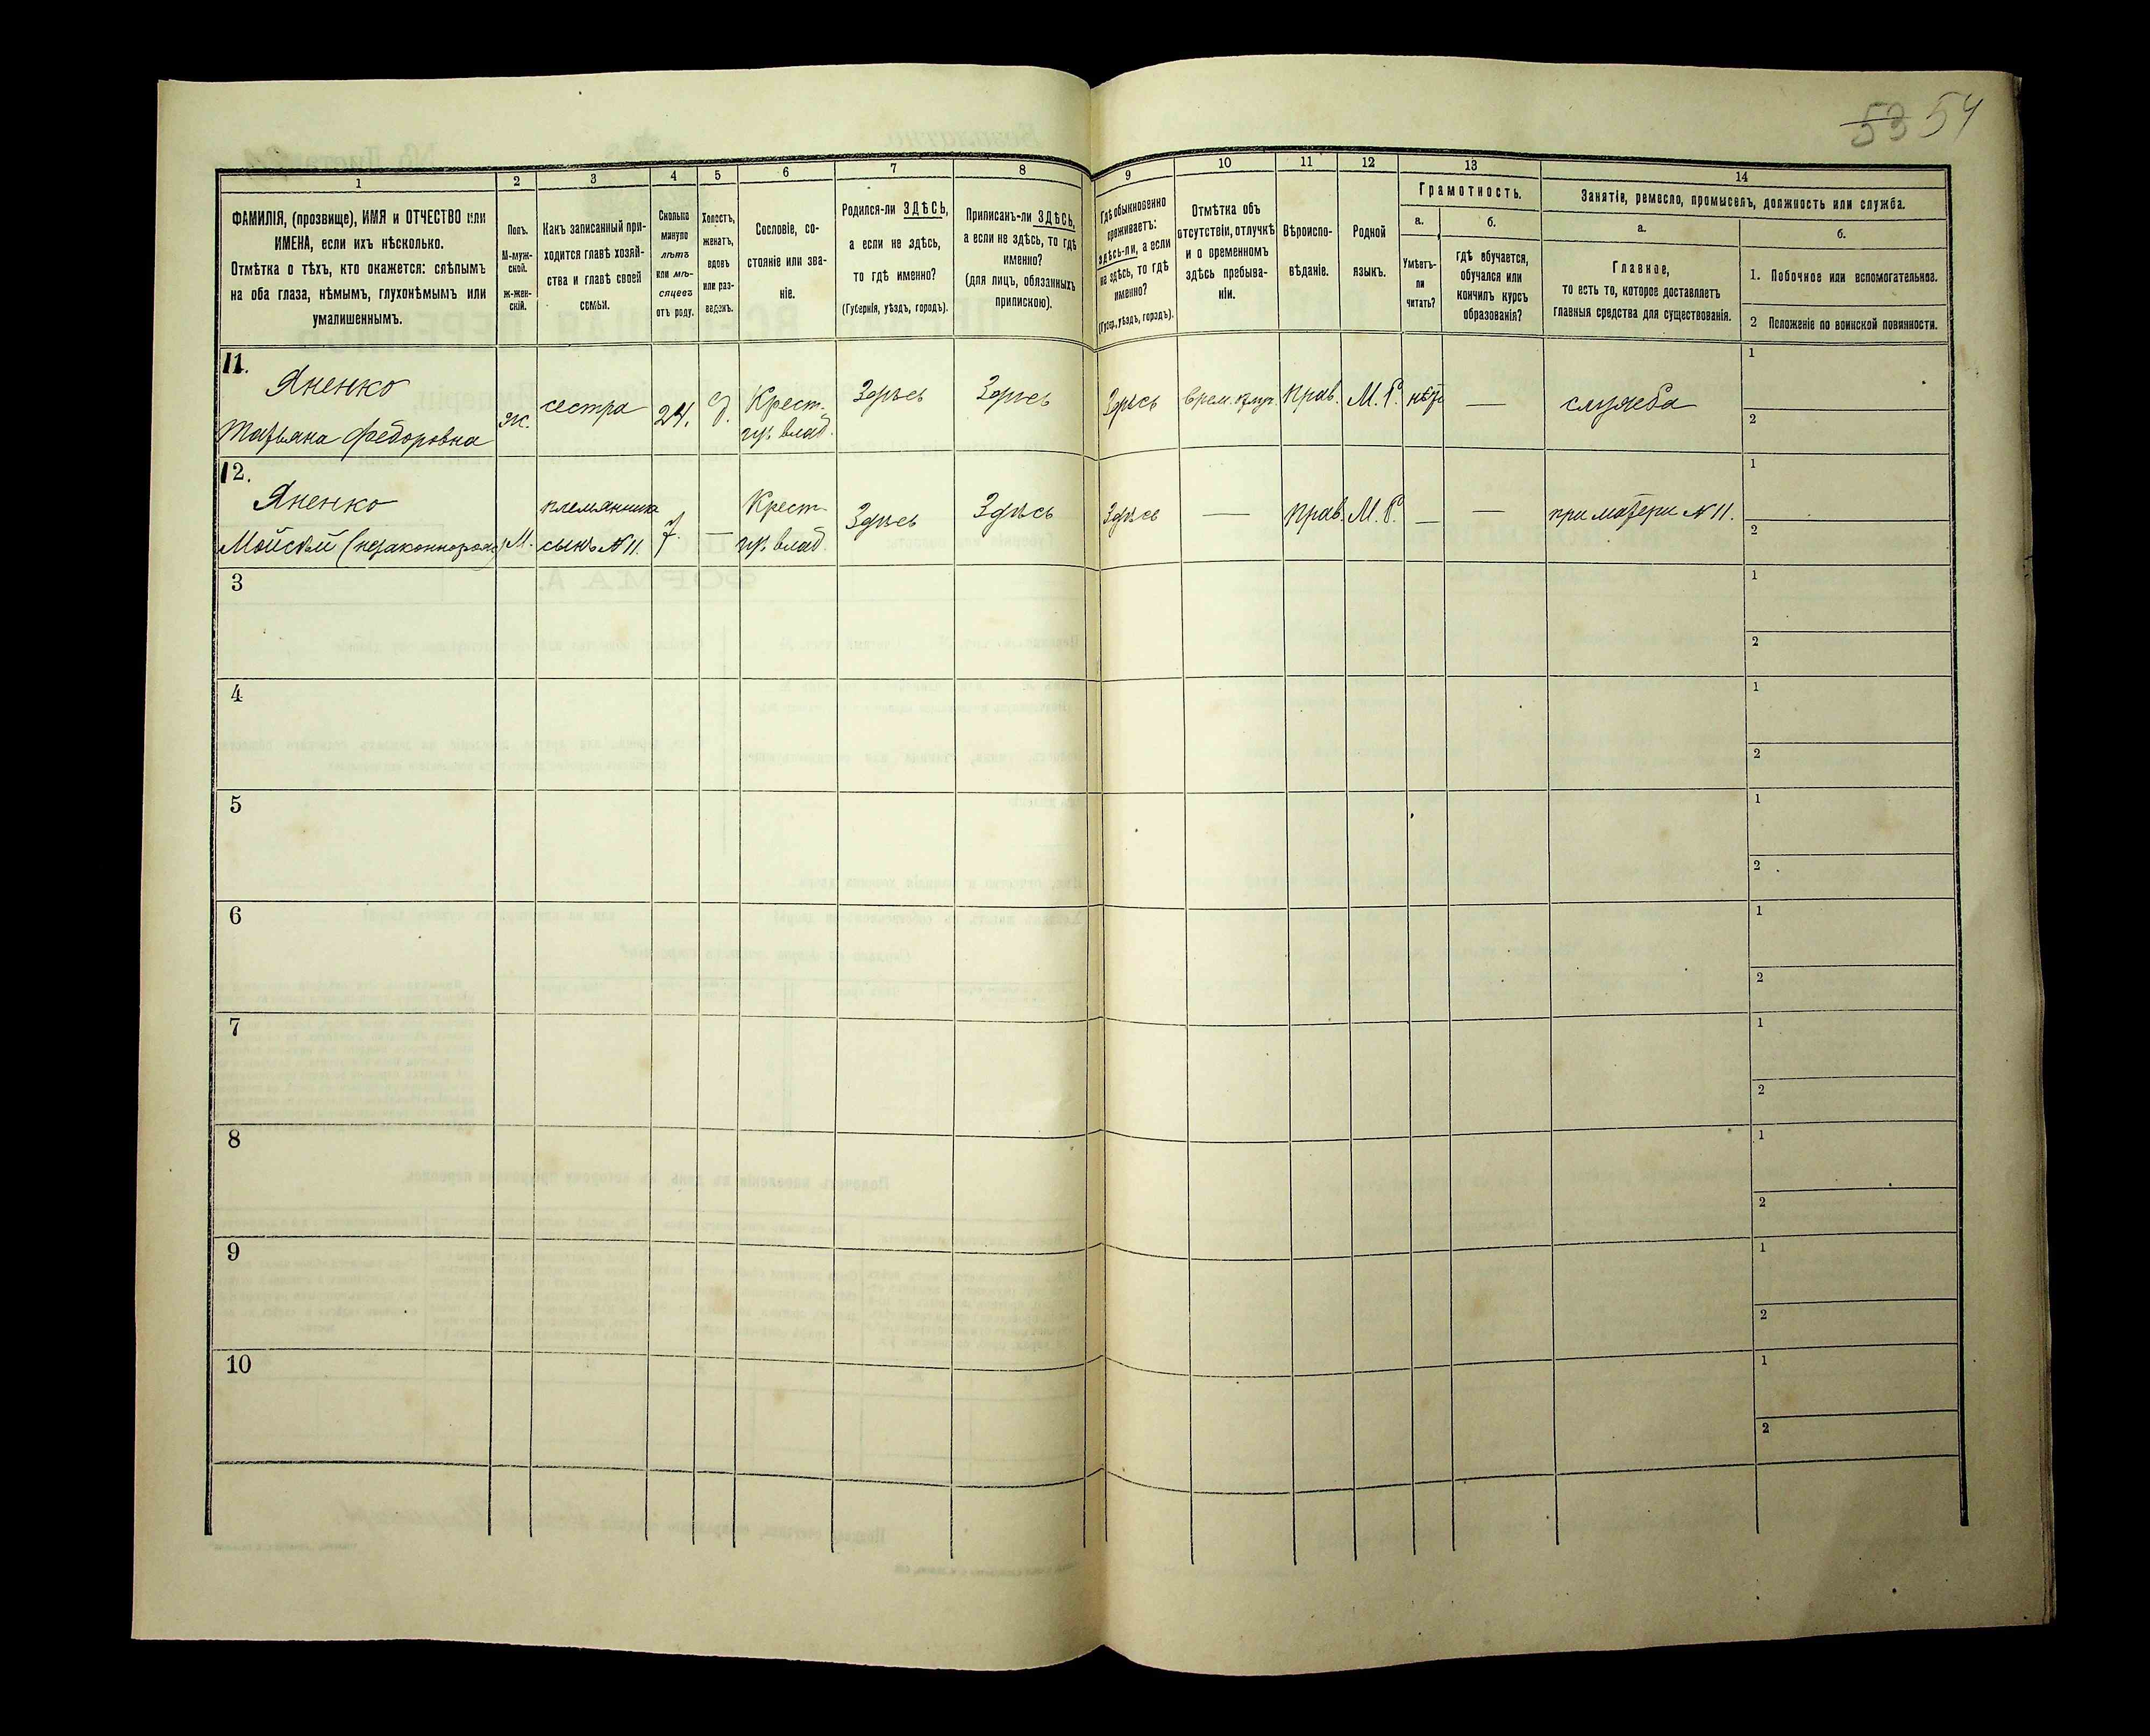 53 54
1
2
3
4
5
6
7
8
9
10
11
12
13
14
ФАМИЛІЯ, (прозвище), ИМЯ и ОТЧЕСТВО или
ИМЕНА, если ихъ нѣсколько.
Отмѣтка о тѣхъ, кто окажется: слѣпымъ
на оба глаза, нѣмымъ, глухонѣмымъ или
умалишеннымъ.
Полъ.
М-муж-
ской.
ж-жен-
скій.
Какъ записанный при-
ходится главѣ хозяй-
ства и главѣ своей
семьи.
Сколько
минуло
лѣтъ
или мѣ-
сяцевъ
отъ роду.
Холостъ,
женатъ,
вдовъ
или раз-
веденъ.
Сословіе, со-
стояніе или зва-
ніе.
Родился-ли ЗДѢСЬ,
а если не здѣсь,
то гдѣ именно?
(Губернія, уѣздъ, городъ).
Приписанъ-ли ЗДѢСЬ,
а если не здѣсь, то гдѣ
именно?
(для лицъ, обязанныхъ
припискою).
Гдѣ обыкновенно
проживаетъ:
здѣсь-ли, а если
не здѣсь, то гдѣ
именно?
(Губер., уѣздъ, городъ).
Отмѣтка объ
отсутствіи, отлучкѣ
и о временномъ
здѣсь пребыва-
ніи.
Вѣроиспо-
вѣданіе.
Родной
языкъ.
Грамотность.
а.
Умѣетъ-
ли
читать?
б.
гдѣ обучается,
обучался или
кончилъ курсъ
образованія?
Занятіе, ремесло, промыселъ, должность или служба.
а.
Главное,
то есть то, которое доставляетъ
главныя средства для существованія.
б.
1. Побочное или вспомогательное.
2 Положеніе по воинской повинности.
11.
Яненко
Татьяна Федоровна
ж.
сестра
24.
д.
Крест.
влад.
Здѣсь
Здѣсь
Здѣсь
врем.
Прав.
М. Р.
нѣт
—
служба
1
2
12.
Яненко
(незаконнорож)
М.
племянникъ
сынъ № 11.
7.
—
Крест.
влад.
Здѣсь
Здѣсь
Здѣсь
—
Прав.
М. Р.
—
—
при матери № 11.
1
2
3
1
2
4
1
2
5
1
2
6
1
2
7
1
2
8
1
2
9
1
2
10
1
2